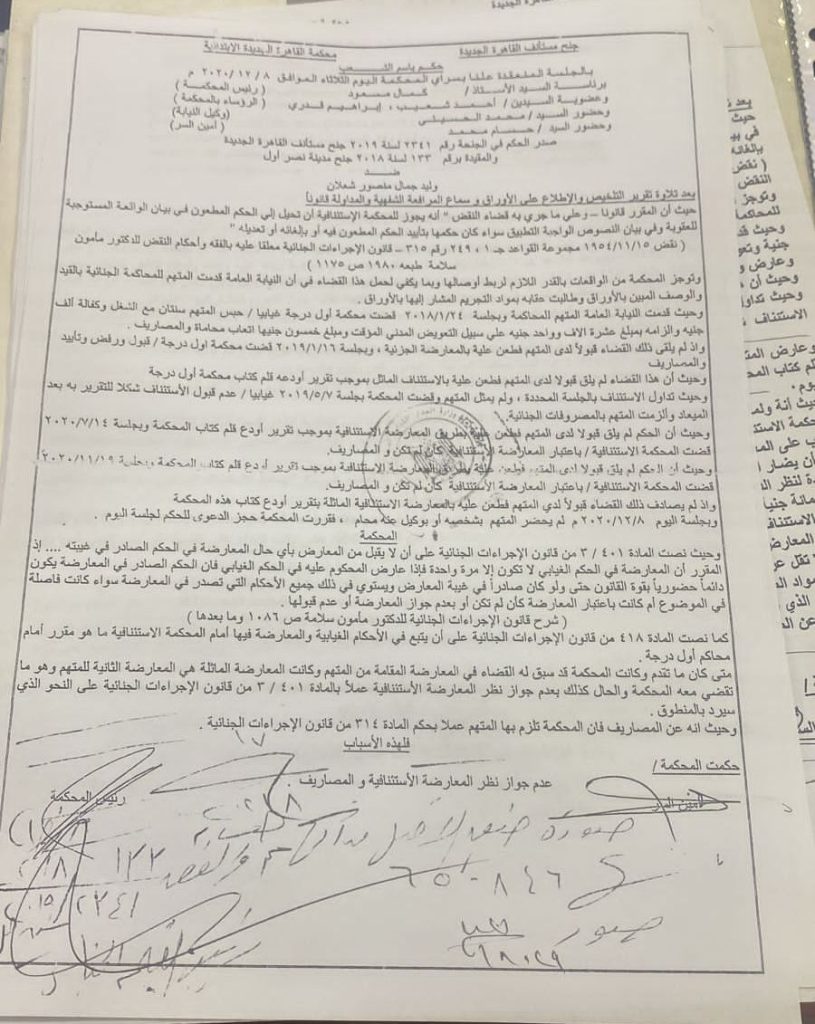 جنح مستأنف القاهرة الجديدة
محكمة القاهرة الجديدة الإبتدائية
حكم باسم الشعب
بالجلسة المنعقدة علنا بسراي المحكمة اليوم الثلاثاء الموافق ٨ / ١٢ / ٢٠٢٠ م
برئاسة السيد الأستاذ / كمال مسعود ( رئيس المحكمة )
وعضوية السيدين / أحمد شعيب ، إبراهيم قدري ( الرؤساء بالمحكمة )
وحضور السيد / محمد الحسيني (وكيل النيابة)
وحضور السيد / حسام محمد (أمين السر)
صدر الحكم في الجنحة رقم ٢٣٤١ لسنة ٢٠١٩ جنح مستأنف القاهرة الجديدة
والمقيدة برقم ١٣٣ لسنة ٢٠١٨ جنح مدينة نصر أول
ضد
وليد جمال منصور شعلان
بعد تلاوة تقرير التلخيص والإطلاع على الأوراق و سماع المرافعة الشفهية والمداولة قانوناً
حيث أن المقرر قانونا – وعلي ما جري به قضاء النقض " أنه يجوز للمحكمة الإستئنافية أن تحيل إلي الحكم المطعون في بيان الواقعة المستوجبة
للعقوبة وفي بيان النصوص الواجبة التطبيق سواء كان حكمها بتأييد الحكم المطعون فيه أو بإلغائه أو تعديله "
( نقض ١٩٥٤/١١/١٥ مجموعة القواعد جـ ١ ، ٢٤٩ رقم ٣١٥ – قانون الإجراءات الجنائية معلقا عليه بالفقه وأحكام النقض للدكتور مأمون
سلامة طبعه ١٩٨٠ ص ١١٧٥ )
وتوجز المحكمة من الواقعات بالقدر اللازم لربط أوصالها وبما يكفي لحمل هذا القضاء في أن النيابة العامة قدمت المتهم للمحاكمة الجنائية بالقيد
والوصف المبين بالأوراق وطالبت عقابه بمواد التجريم المشار إليها بالأوراق .
وحيث قدمت النيابة العامة المتهم للمحاكمة وبجلسة ٢٠١٨/١/٢٤ قضت محكمة أول درجة غيابيا / حبس المتهم سنتان مع الشغل وكفالة ألف
جنيه والزامه بمبلغ عشرة الاف وواحد جنيه علي سبيل التعويض المدني المؤقت ومبلغ خمسون جنيها اتعاب محاماة والمصاريف .
واذ لم يلقى ذلك القضاء قبولاً لدى المتهم فطعن علية بالمعارضة الجزئية ، وبجلسة ٢٠١٩/١/١٦ قضت محكمة اول درجة / قبول ورفض وتأييد
والمصاريف
وحيث أن هذا القضاء لم يلق قبولا لدى المتهم فطعن علية بالاستئناف الماثل بموجب تقرير أودعه قلم كتاب محكمة أول درجة
وحيث تداول الاستئناف بالجلسة المحددة ، ولم يمثل المتهم وقضت المحكمة بجلسة ٢٠١٩/٥/٧ غيابيا / عدم قبول الأستئناف شكلا للتقرير به بعد
الميعاد وألزمت المتهم بالمصروفات الجنائية.
وحيث أن الحكم لم يلق قبولا لدى المتهم فطعن علية بطريق المعارضة الاستئنافية بموجب تقرير أودع قلم كتاب المحكمة وبجلسة ٢٠٢٠/٧/١٤
قضت المحكمة الاستئنافية / باعتبار المعارضة الإستئنافية كأن لم تكن و المصاريف.
وحيث أن الحكم لم يلق قبولا لدى المتهم فطعن علية بطريق المعارضة الاستئنافية بموجب تقرير أودع قلم كتاب المحكمة وبجلسة ٢٠٢٠/١١/١٩
قضت المحكمة الاستئنافية / باعتبار المعارضة الإستئنافية كأن لم تكن و المصاريف.
واذ لم يصادف ذلك القضاء قبولاً لدي المتهم فطعن علية بالمعارضة الاستئنافية الماثلة بتقرير أودع كتاب هذه المحكمة
وبجلسة اليوم ٢٠٢٠/١٢/٨ م لم يحضر المتهم بشخصيه أو بوكيل عنه محام ، فقررت المحكمة حجز الدعوى للحكم لجلسة اليوم .
المحكمة
وحيث نصت المادة ٤٠١ / ٣ من قانون الإجراءات الجنائية على أن لا يقبل من المعارض بأي حال المعارضة في الحكم الصادر في غيبته .... إذ
المقرر أن المعارضة في الحكم الغيابي لا تكون إلا مرة واحدة فإذا عارض المحكوم عليه في الحكم الغيابي فان الحكم الصادر في المعارضة يكون
دائماً حضورياً بقوة القانون حتى ولو كان صادراً في غيبة المعارض ويستوي في ذلك جميع الأحكام التي تصدر في المعارضة سواء كانت فاصلة
في الموضوع أم كانت باعتبار المعارضة كأن لم تكن أو بعدم جواز المعارضة أو عدم قبولها .
( شرح قانون الإجراءات الجنائية للدكتور مأمون سلامة ص ١٠٨٦ وما بعدها )
كما نصت المادة ٤١٨ من قانون الإجراءات الجنائية على أن يتبع في الأحكام الغيابية والمعارضة فيها أمام المحكمة الاستئنافية ما هو مقرر أمام
محاكم أول درجة .
متى كان ما تقدم وكانت المحكمة قد سبق له القضاء في المعارضة المقامة من المتهم وكانت المعارضة الماثلة هي المعارضة الثانية للمتهم وهو ما
تقضي معه المحكمة والحال كذلك بعدم جواز نظر المعارضة الأستئنافية عملاً بالمادة ٤٠١ / ٣ من قانون الإجراءات الجنائية على النحو الذي
سيرد بالمنطوق .
وحيث انه عن المصاريف فان المحكمة تلزم بها المتهم عملا بحكم المادة ٣١٤ من قانون الإجراءات الجنائية .
فلهذه الأسباب
حكمت المحكمة /
عدم جواز نظر المعارضة الأستئنافية و المصاريف .
أمين السر
رئيس المحكمة
صورة
١٣٣
٦٥٠٨٤٦
٢٣٤١
صور